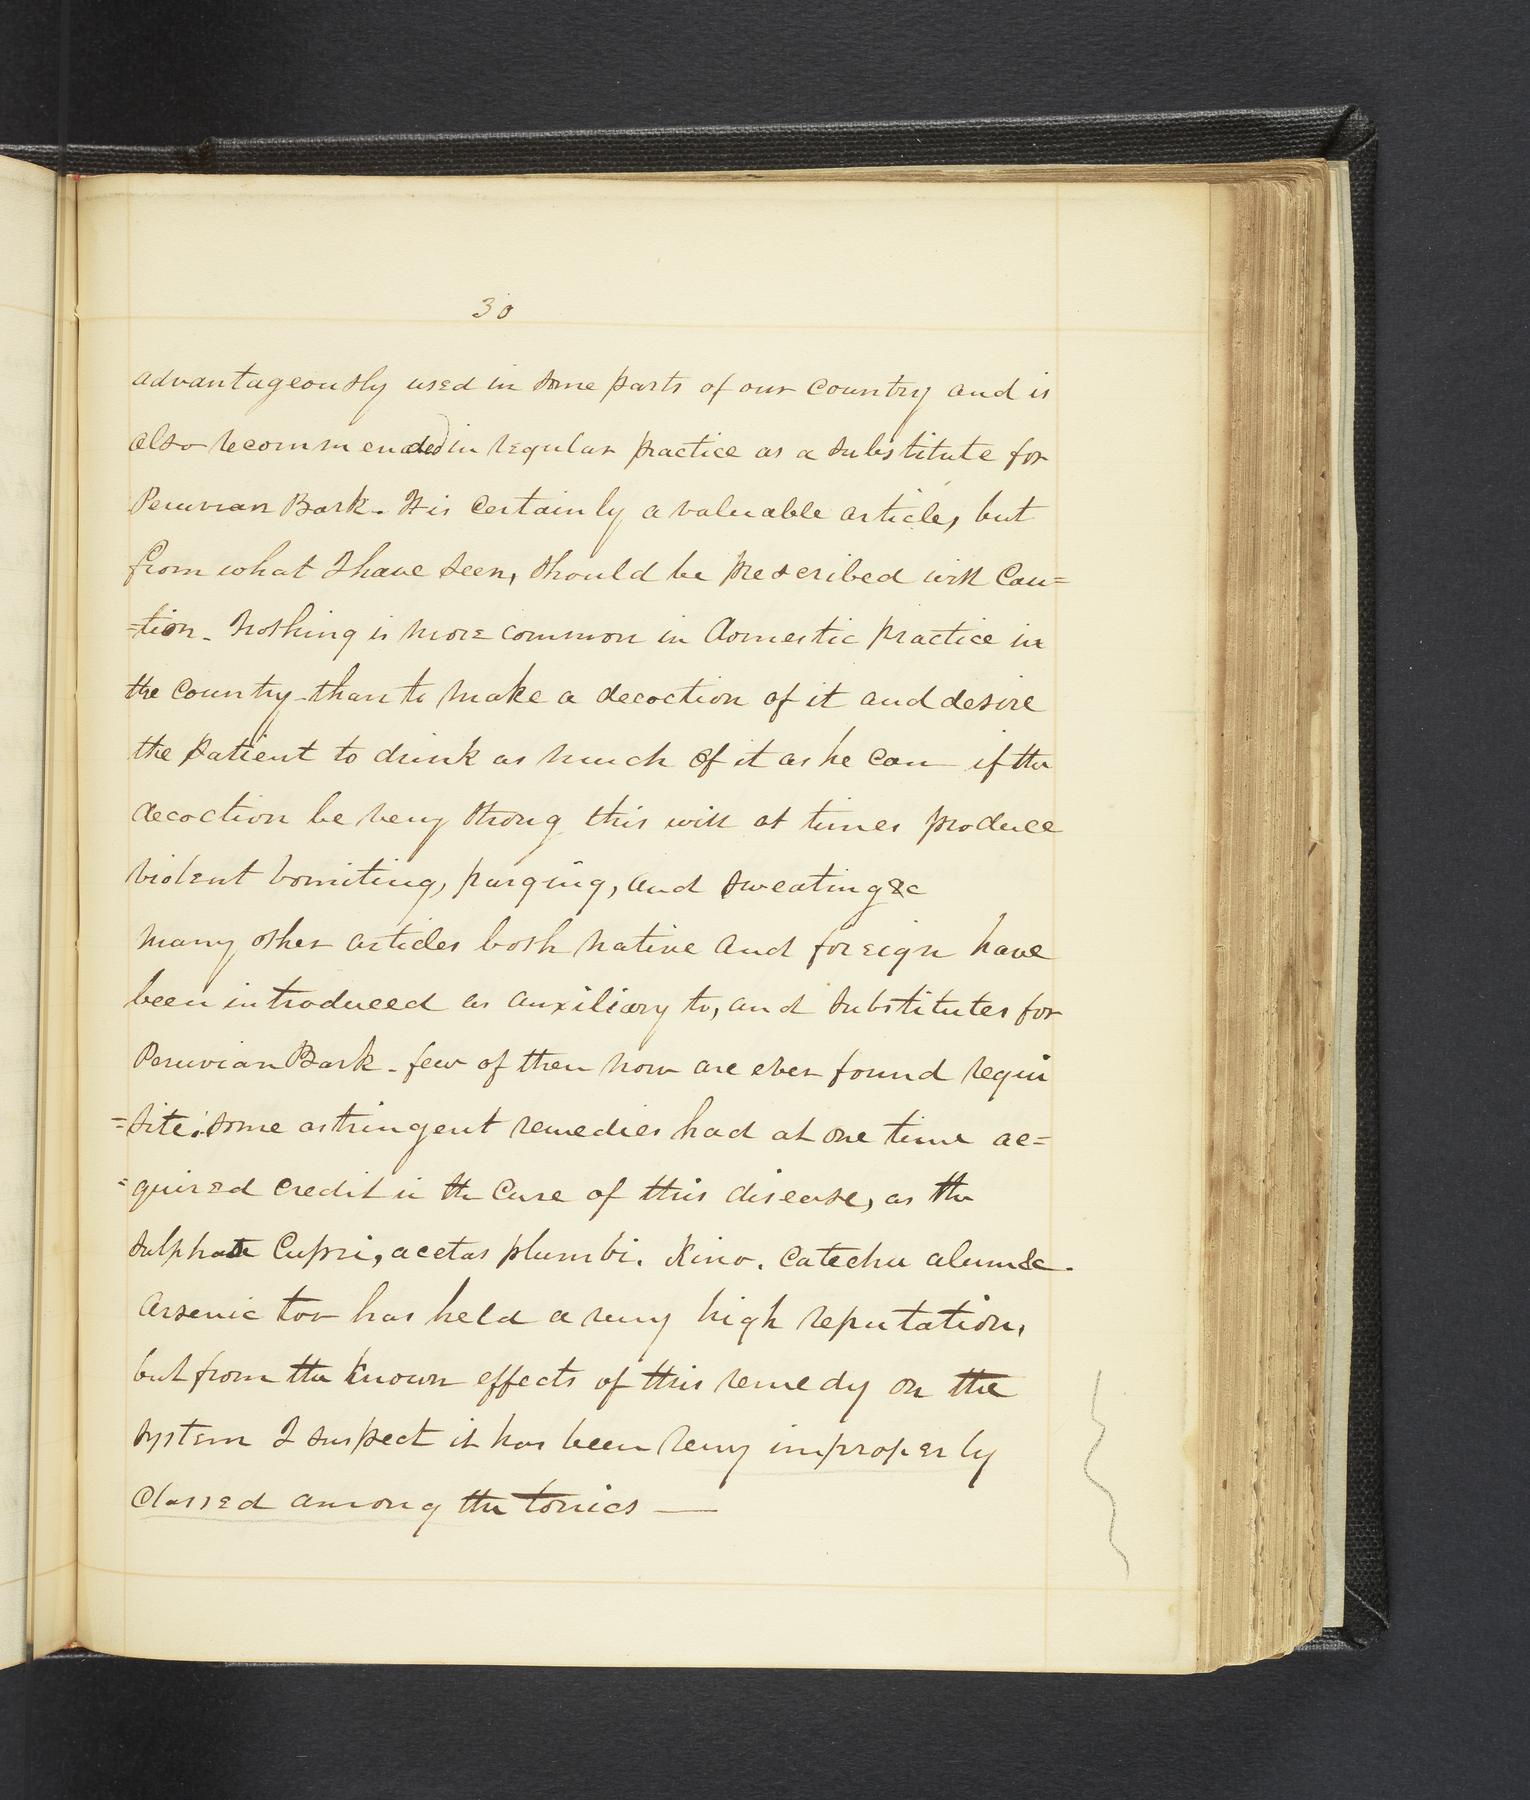 30
advantageously used in some parts of our country and is
also recommended in regular practice as a substitute for
Peruvian Bark. It is certainly a valuable article, but
from what I have seen, should be prescribed with Cau=
=tion. Nothing is more common in domestic practice in
the country than to make a decoction of it and desire
the patient to drink as much of it as he can if the
decoction be very strong this will at times produce
violent vomiting, purging, and sweating &c
Many other articles both native and foreign have
been introduced as auxiliary to, and substitutes for
Peruvian Bark - few of them now are ever found requi
=site: some astringent remedies had at one time ac=
=quired credit in the cure of this disease, as the
Sulphate Cupri, acetas plumbi. Kino. Catechu alum &c.
Arsenic too has held a very high reputation,
but from the known effects of this remedy on the
system I suspect it has been very improperly
classed among the tonics —